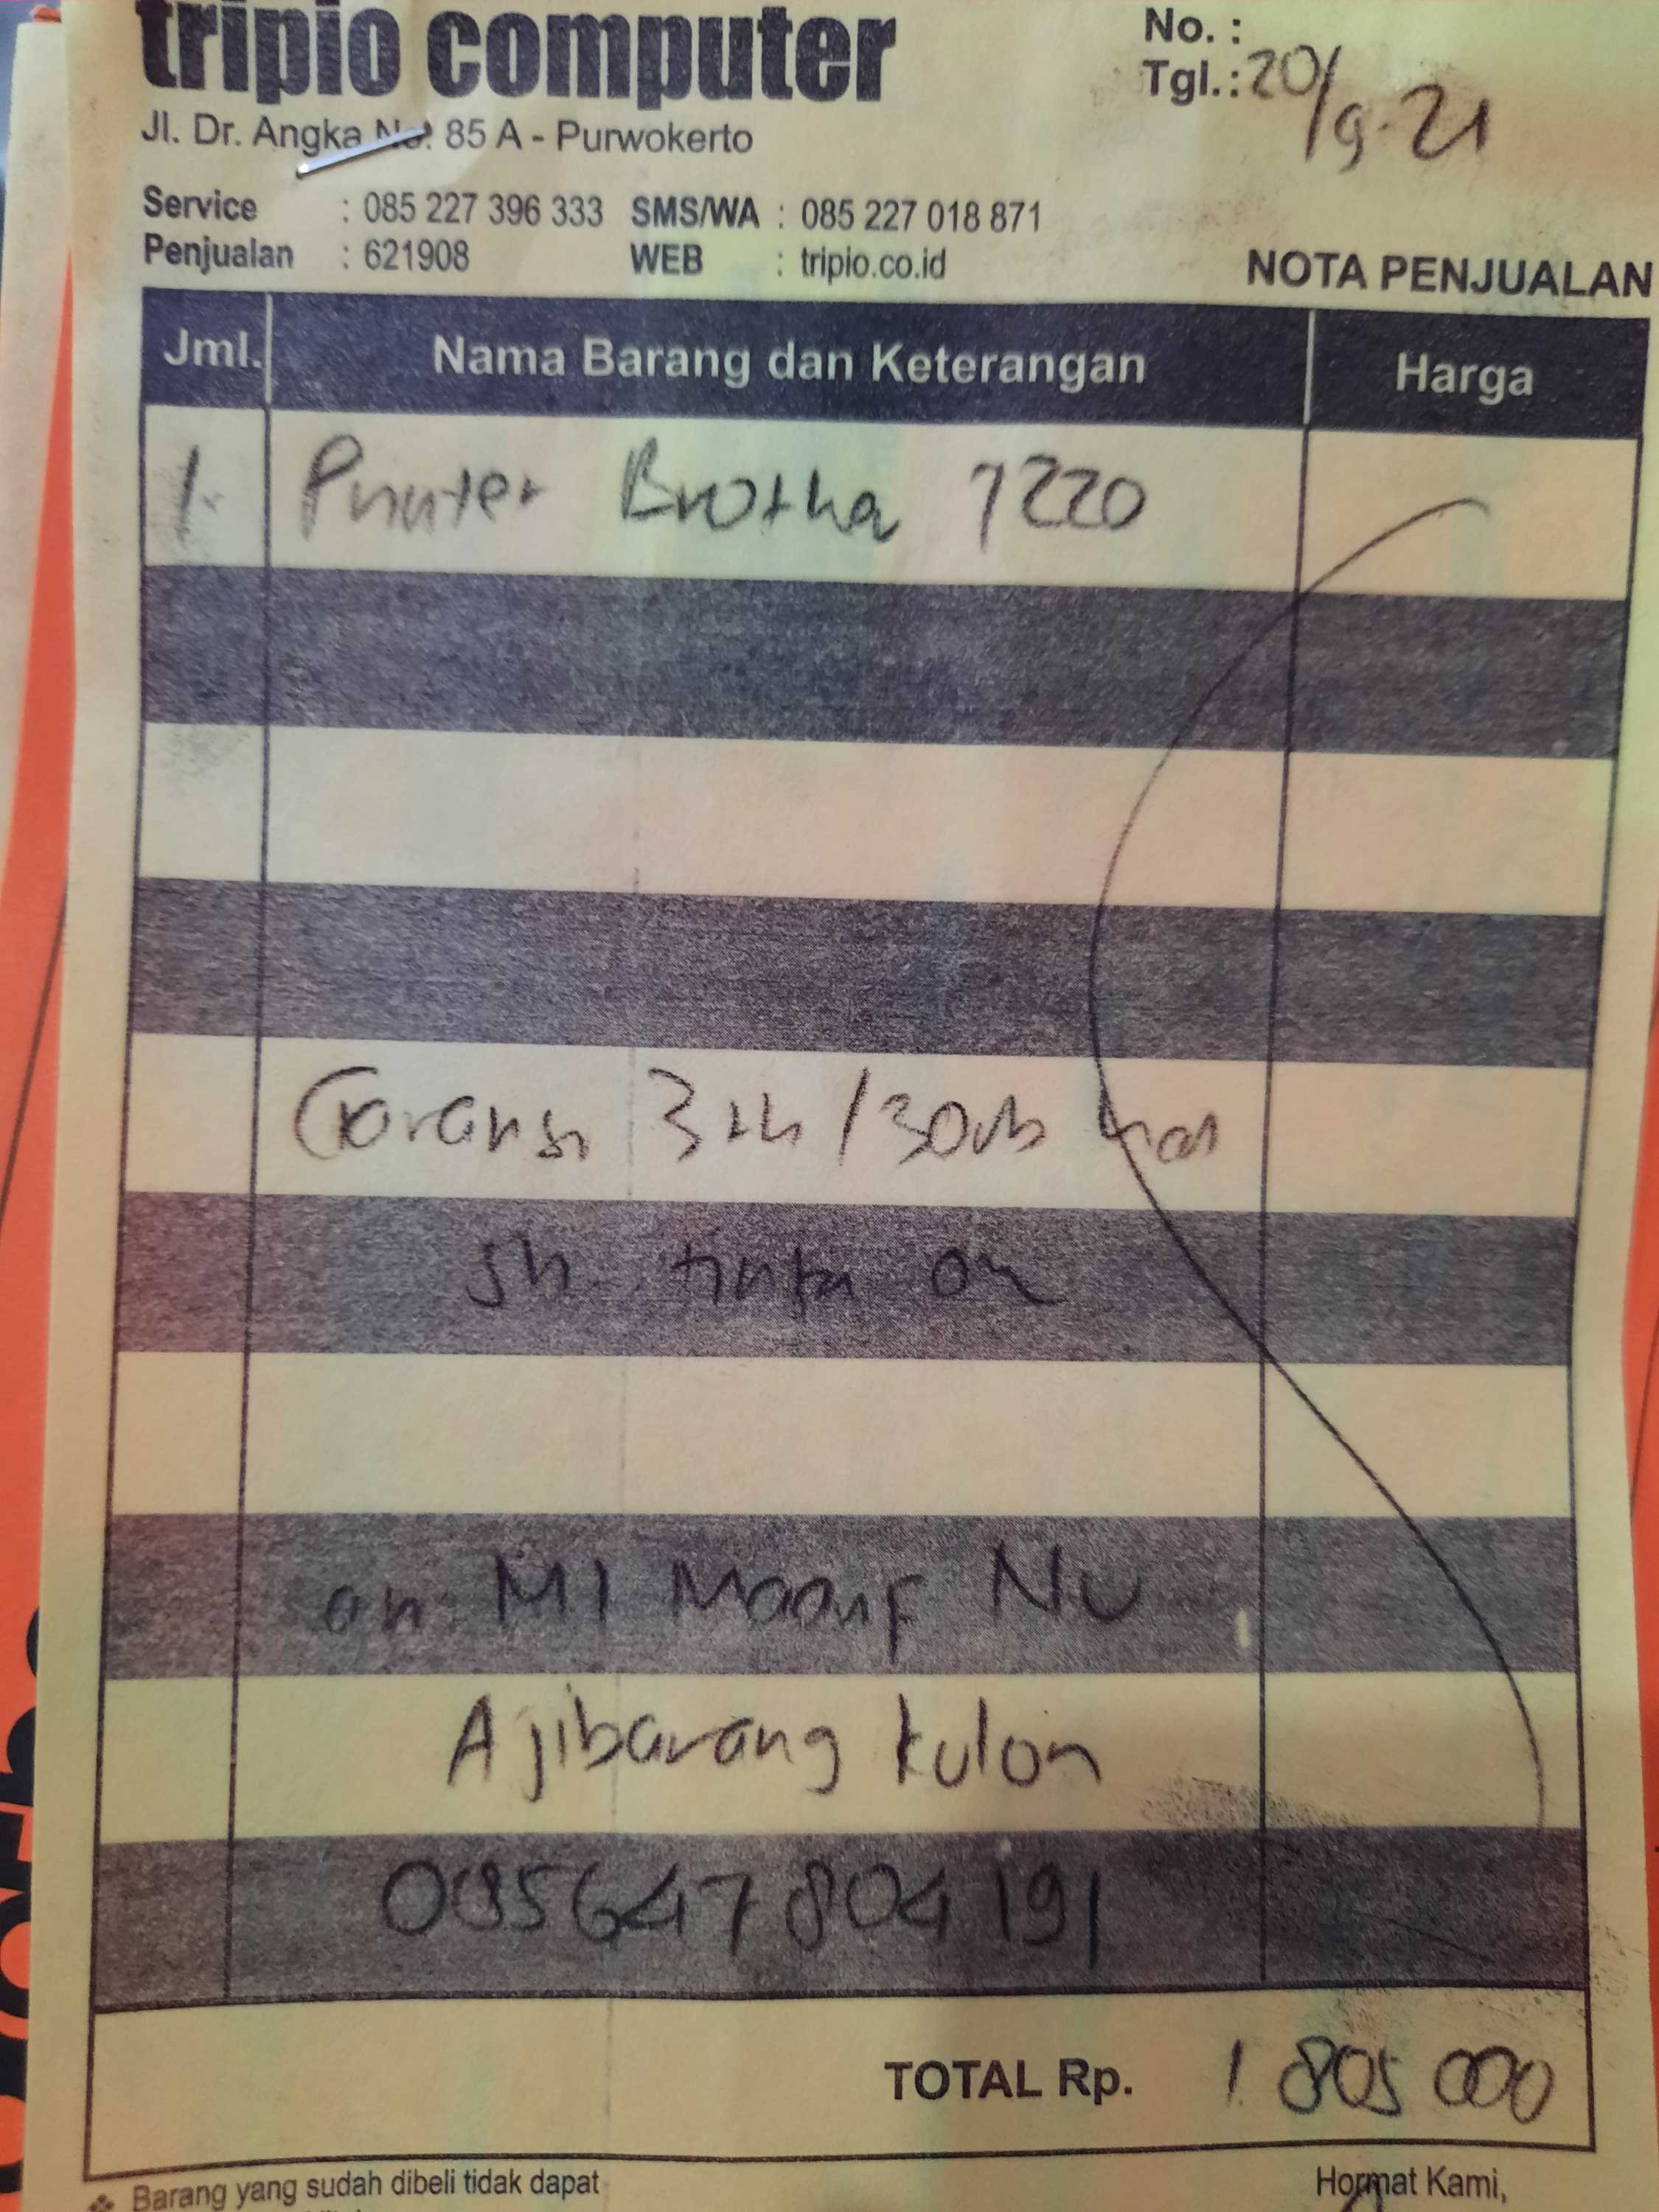 tripio computer
No. :
Tgl. : 20/9-21
Jl. Dr. Angka No. 85 A - Purwokerto
Service : 085 227 396 333 SMS/WA : 085 227 018 871
Penjualan : 621908 WEB : tripio.co.id
NOTA PENJUALAN
Jml. Nama Barang dan Keterangan Harga
1. Printer Brother T220
Garansi 3th/30rb
tinta
an. MI Maarif NU
Ajibarang kulon
085647804191
TOTAL Rp. 1 805 000
Barang yang sudah dibeli tidak dapat
Hormat Kami,